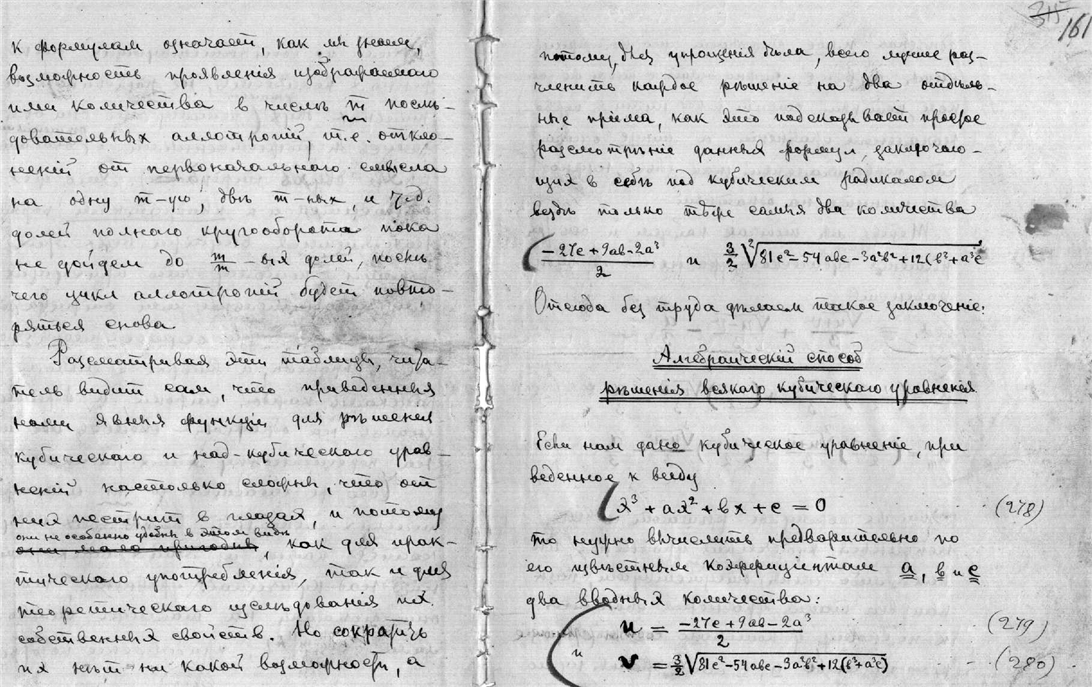 къ формуламъ означаетъ, какъ мы знаемъ,
возможность проявленія изображаемаго
ими количества в числѣ m послѣ-
довательныхъ аллотропій, т.е. откло-
неній от первоначальнаго смысла
на одну m-ую, двѣ m-ныхъ, и т.д.
долей полнаго кругооборота пока
не дойдем до m/m -ыхъ долей, послѣ
чего циклъ аллотропій будетъ повто-
ряться снова
Разсматривая эти таблицы, чита-
тель видитъ самъ, что приведенныя
нами явныя функціи для рѣшенія
кубическаго и над-кубическаго урав-
неній настолько сложны, что от
нихъ пестритъ в глазахъ, и потому
они не особенно удобны в этомъ видѣ
они мало пригодны, какъ для прак-
тическаго употребленія, такъ и для
теоретическаго изслѣдованія ихъ
собственныхъ свойствъ. Но сократить
ихъ нѣтъ ни какой возможности, а
315 161
потому, для упрощенія дѣла, всего лучше раз-
членить каждое рѣшеніе на два отдѣль-
ные пріема, какъ это подсказываетъ простое
разсмотрѣніе данныхъ формулъ, заключаю-
щихъ в себѣ под кубическимъ радикаломъ
вездѣ только тѣ же самыя два количества
(−27c + 9ab − 2a³)/2 и 3/2 ²√81c² − 54abc − 3a²b² + 12(b³ + a³c
Отсюда без труда дѣлаемъ такое заключеніе:
Алгебраическій способ
рѣшенія всякаго кубическаго уравненія
Если нам дано кубическое уравненіе, при
веденное к виду
x³ + ax² + bx + c = 0 (278)
то нужно вычислить предварительно по
его извѣстнымъ коэффиціентамъ a, b и c
два вводныхъ количества:
u = (−27c + 9ab − 2a³)/2 (279)
и
v = 3/2 √81c² − 54abc − 3a²b² + 12(b³ + a³c) (280)